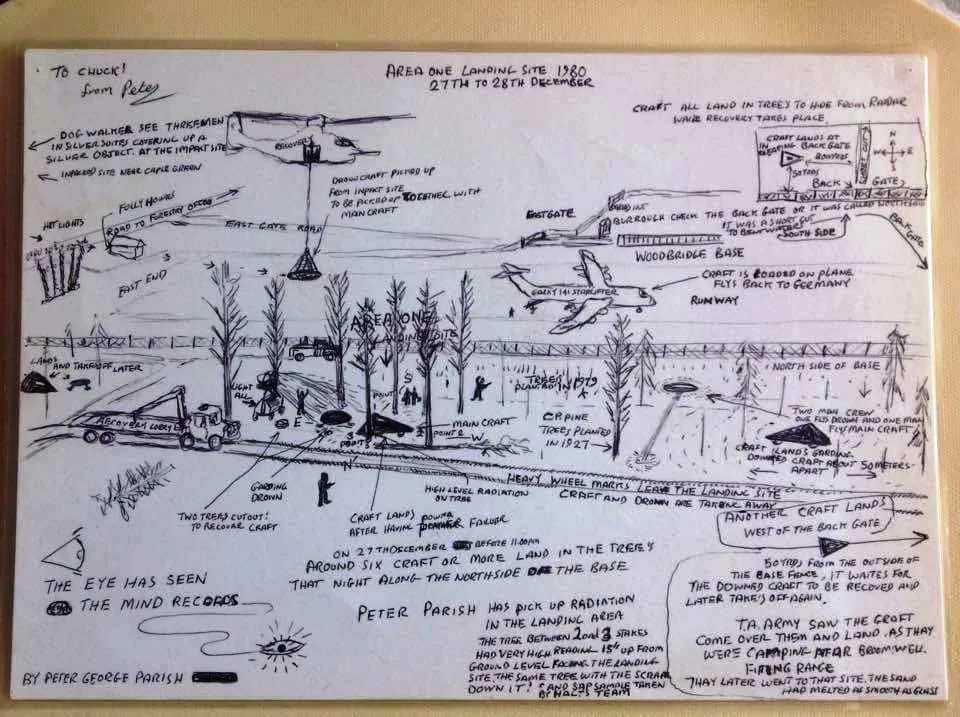 TO CHUCK!
from Peter
AREA ONE LANDING SITE 1980
27TH TO 28TH DECEMBER
DOG WALKER SEE THREE MEN
IN SILVER SUITES COVERING UP A
SILVER OBJECT. AT THE IMPACT SITE
IMPACED SITE NEAR CAPLE GREEN
RECOVERY
DROWN CRAFT PICKED UP
FROM IMPACT SITE
TO BE PICKED UP TOGETHER WITH
MAIN CRAFT
CRAFT ALL LAND IN TREE'S TO HIDE FROM RADAR
WHILE RECOVERY TAKES PLACE.
CRAFT LANDS AT
IN CLEARING BACK GATE
50 YDS
BACK
GATE
N
W
E
S
FOLLY HOUSES
ROAD TO FORESTRY OFFICE
HIT LIGHTS
EAST GATE ROAD
EAST END
EASTGATE
BURROUGH CHECK THE BACK GATE OR IT WAS CALLED
IT WAS A SHORT CUT
TO BENTWATERS
SOUTH SIDE
BACK GATE
WOODBRIDGE BASE
GALAXY 141 STARLIFTER
CRAFT IS LOADED ON PLANE
FLYS BACK TO GERMANY
RUNWAY
AREA ONE
LANDING SITE
LANDS
AND TAKE OFF LATER
LIGHT
ALL
NORTH SIDE OF BASE
TREE'S
PLANTED IN 1979
POINT
S
E
N
W
MAIN CRAFT
POINT 2
C.P. PINE
TREES PLANTED
IN 1927
TWO MAN CREW
ONE FLYS DROWN AND ONE MAN
FLYS MAIN CRAFT
CRAFT LANDS GARDING
DOWNED CRAFT ABOUT 50 METERS
APART
RECOVERY LORRY
GARDING
DROWN
HIGH LEVEL RADIATION
ON TREE
HEAVY WHEEL MARKS LEAVE THE LANDING SITE
CRAFT AND DROWN ARE TAKEN AWAY
TWO TREES CUTOUT!
TO RECOVER CRAFT
CRAFT LANDS
AFTER HAVING POWER FAILUER
ANOTHER CRAFT LANDS
WEST OF THE BACK GATE
ON 27TH DECEMBER BEFORE 11.00PM
AROUND SIX CRAFT OR MORE LAND IN THE TREE'S
THAT NIGHT ALONG THE NORTHSIDE OF THE BASE
THE EYE HAS SEEN
THE MIND RECORDS
PETER PARISH HAS PICK UP RADIATION
IN THE LANDING AREA
THE TREE BETWEEN 2 and 3 STAKES
HAD VERY HIGH READING 15" UP FROM
GROUND LEVEL FACING THE LANDING
SITE, THE SAME TREE WITH THE SCRAM
DOWN IT! AND SAP SAMPLE TAKEN
BY HALT'S TEAM
50 YRDS FROM THE OUTSIDE OF
THE BASE FENCE, IT WAITES FOR
THE DOWNED CRAFT TO BE RECOVED AND
LATER TAKE'S OFF AGAIN.
T.A. ARMY SAW THE CRAFT
COME OVER THEM AND LAND. AS THAY
WERE CAMPING AFAR BROOMWELL
FIRING RANGE
THAY LATER WENT TO THAT SITE. THE SAND
HAD MELTED AS SMOOTH AS GLASS
BY PETER GEORGE PARISH